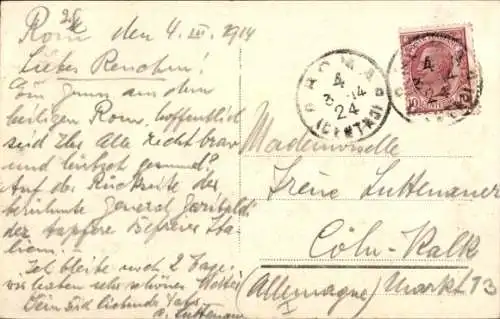 Rom den 4. III. 1914
Liebes Renchen!
Ein Gruss aus dem
heiligen Rom, hoffentlich
seid Ihr Alle recht brav
und gesund?
Auf der Rückseite der
berühmte General Garibaldi
der tapfere Befreier Ita
liens.
Ich bleibe noch 2 Tage,
wir haben sehr schönes Wetter
Dein Dich liebender
A. Luttenauer
ROMA
4
3 14
24
(CENTRO)
10
Mademoiselle
Irene Luttenauer
Cöln-Kalk
(Allemagne) Markt 13
I